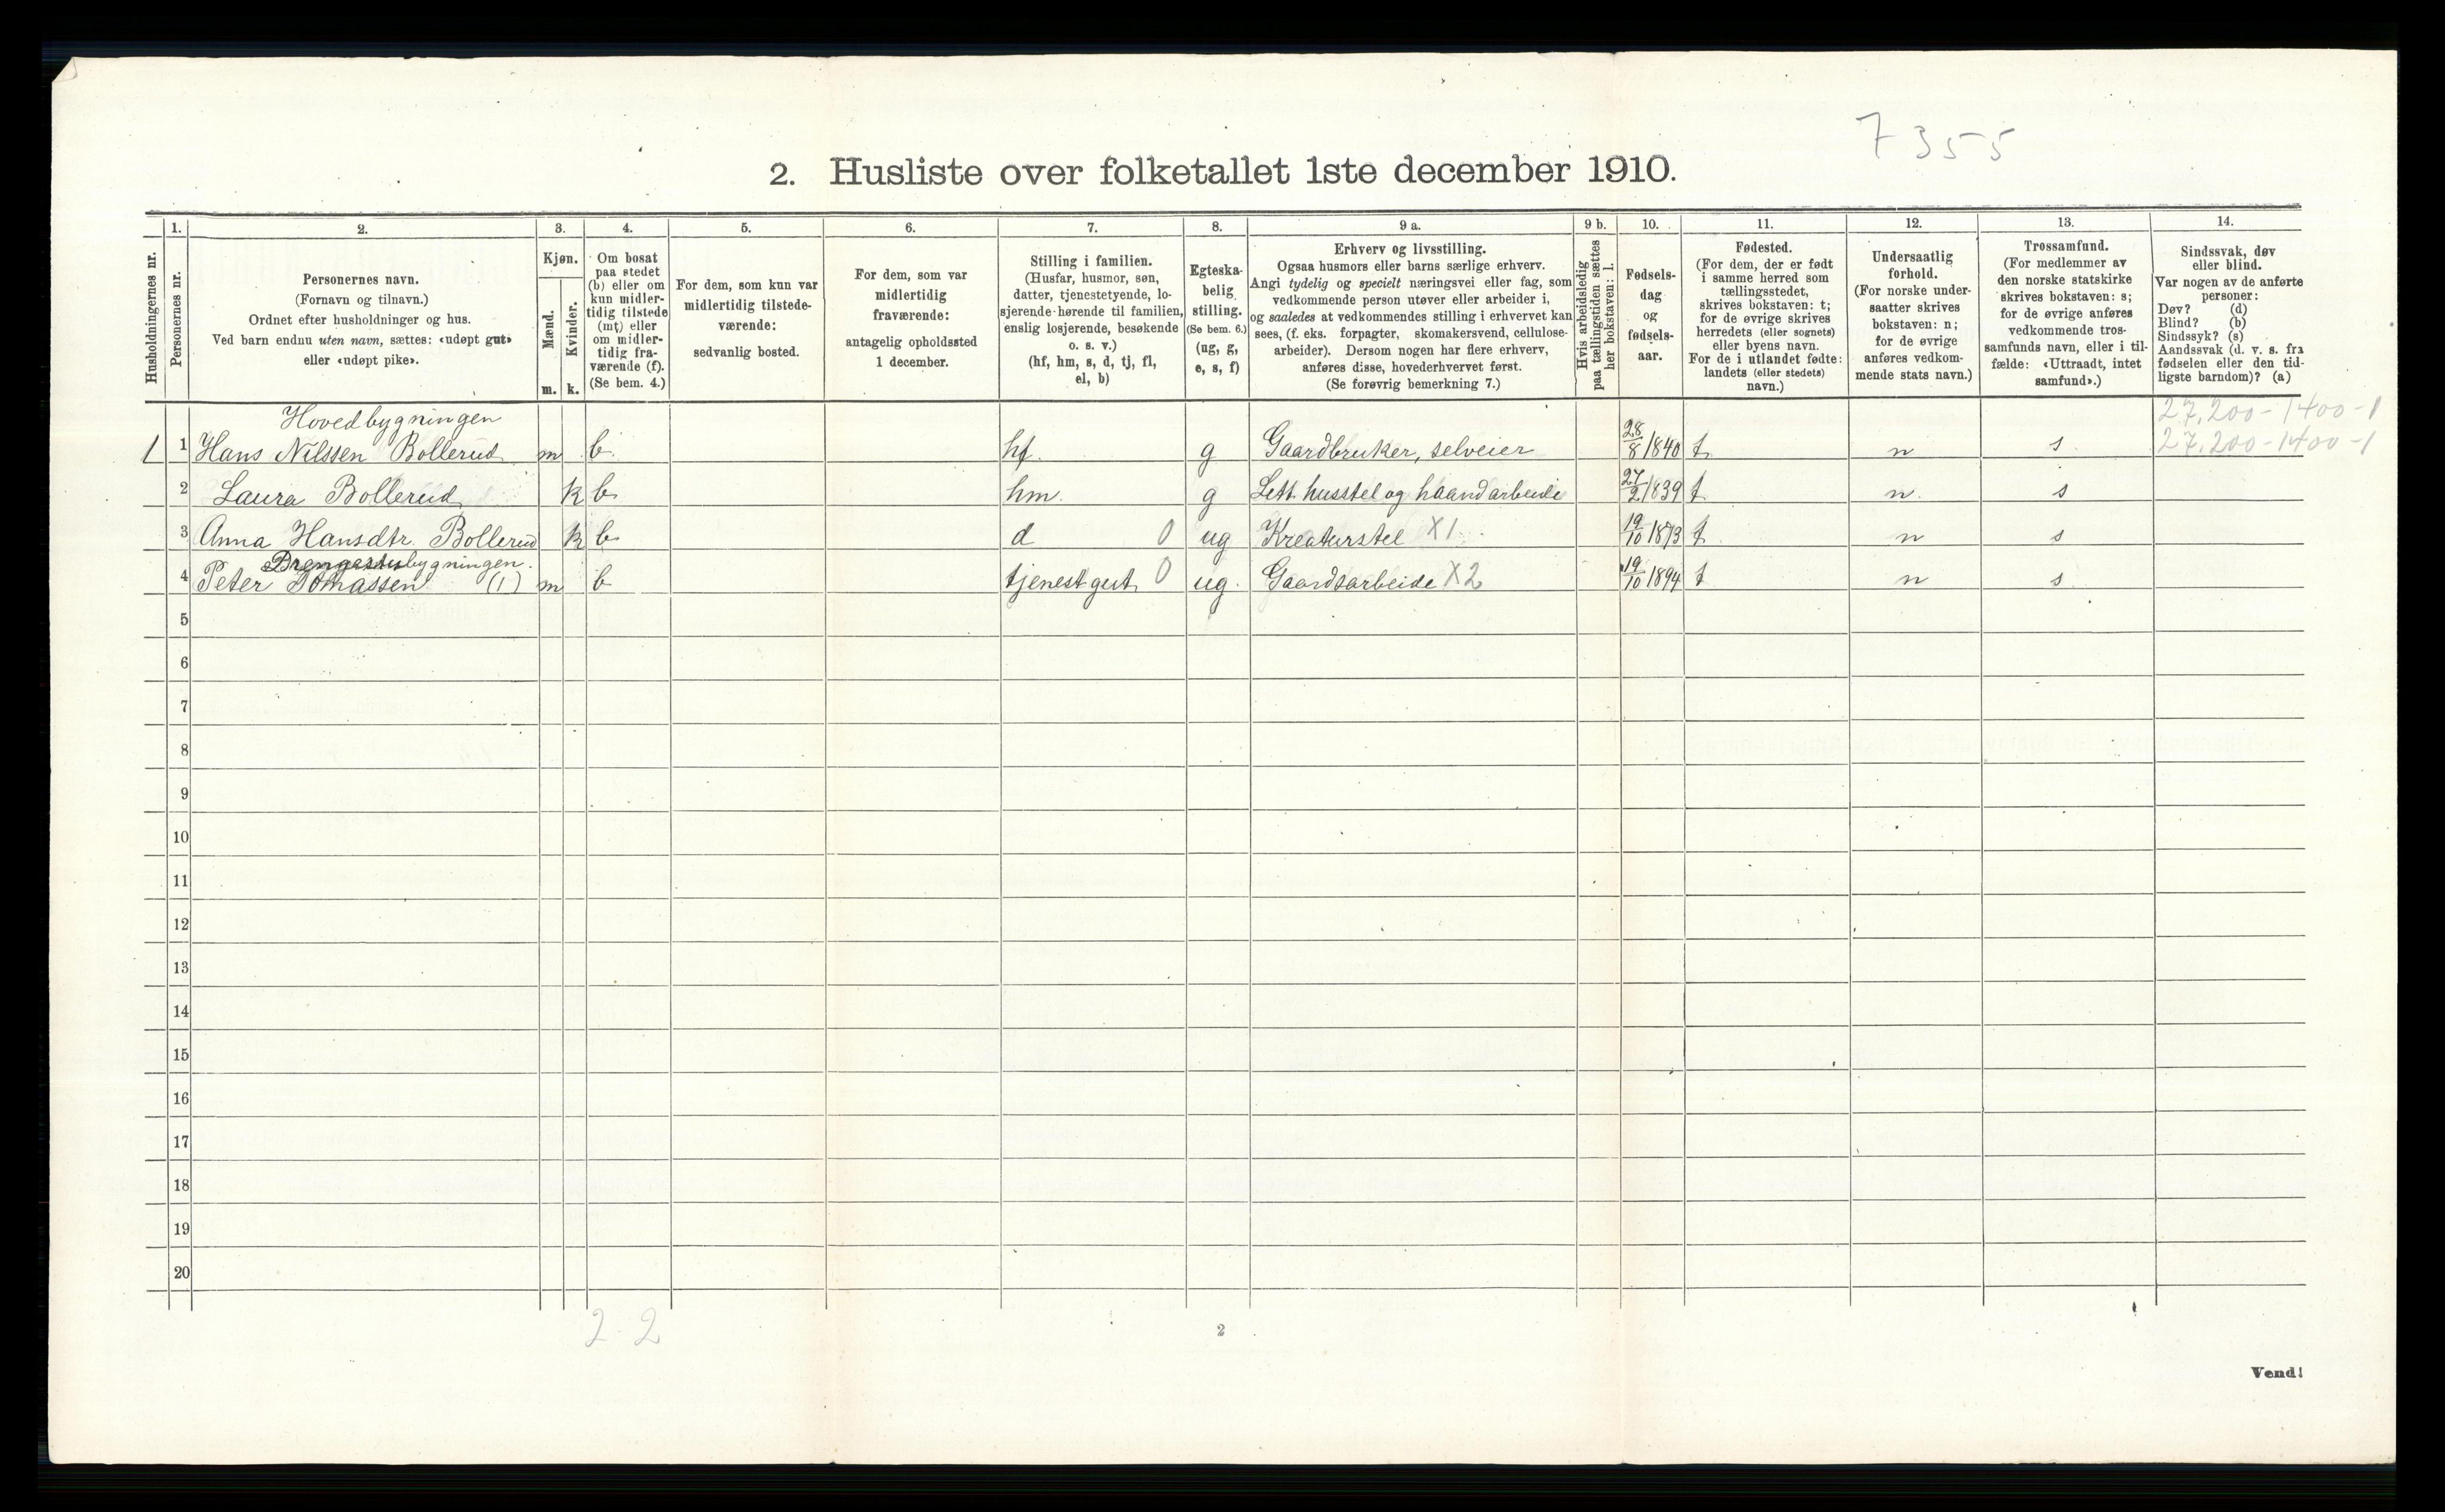 7355
2. Husliste over folketallet 1ste december 1910.
1. 2. 3. 4. 5. 6. 7. 8. 9 a. 9 b. 10. 11. 12. 13. 14.
Husholdningernes nr.
Personernes nr.
Personernes navn.
(Fornavn og tilnavn.)
Ordnet efter husholdninger og hus.
Ved barn endnu uten navn, sættes: «udøpt gut»
eller «udøpt pike».
Kjøn.
Mænd.
Kvinder.
m. k.
Om bosat
paa stedet
(b) eller om
kun midler-
tidig tilstede
(mt) eller
om midler-
tidig fra-
værende (f).
(Se bem. 4.)
For dem, som kun var
midlertidig tilstede-
værende:
sedvanlig bosted.
For dem, som var
midlertidig
fraværende:
antagelig opholdssted
1 december.
Stilling i familien.
(Husfar, husmor, søn,
datter, tjenestetyende, lo-
sjerende hørende til familien,
enslig losjerende, besøkende
o. s. v.)
(hf, hm, s, d, tj, fl,
el, b)
Egteska-
belig
stilling.
(Se bem. 6.)
(ug, g,
e, s, f)
Erhverv og livsstilling.
Ogsaa husmors eller barns særlige erhverv.
Angi tydelig og specielt næringsvei eller fag, som
vedkommende person utøver eller arbeider i,
og saaledes at vedkommendes stilling i erhvervet kan
sees, (f. eks. forpagter, skomakersvend, cellulose-
arbeider). Dersom nogen har flere erhverv,
anføres disse, hovederhvervet først.
(Se forøvrig bemerkning 7.)
Hvis arbeidsledig
paa tællingstiden sættes
her bokstaven: l.
Fødsels-
dag
og
fødsels-
aar.
Fødested.
(For dem, der er født
i samme herred som
tællingsstedet,
skrives bokstaven: t;
for de øvrige skrives
herredets (eller sognets)
eller byens navn.
For de i utlandet fødte:
landets (eller stedets)
navn.)
Undersaatlig
forhold.
(For norske under-
saatter skrives
bokstaven: n;
for de øvrige
anføres vedkom-
mende stats navn.)
Trossamfund.
(For medlemmer av
den norske statskirke
skrives bokstaven: s;
for de øvrige anføres
vedkommende tros-
samfunds navn, eller i til-
fælde: «Uttraadt, intet
samfund».)
Sindssvak, døv
eller blind.
Var nogen av de anførte
personer:
Døv? (d)
Blind? (b)
Sindssyk? (s)
Aandssvak (d. v. s. fra
fødselen eller den tid-
ligste barndom)? (a)
Hovedbygningen 27.200-1400-1
1 1 Hans Nilssen Bollerud m b hf. g Gaardbruker, selveier 28/8 1840 t n s 27.200-1400-1
2 Laura Bollerud k b hm. g Lett husstel og haandarbeide 27/2 1839 t n. s
3 Anna Hansdtr. Bollerud k b d 0 ug Kreaturstel X1 19/10 1873 t n s
Drengestubygningen.
4 Peter Tomassen (1) m b tjenestgut 0 ug. Gaardsarbeide X2 19/10 1894 t n s
5
6
7
8
9
10
11
12
13
14
15
16
17
18
19
20
2 2
2
Vend!